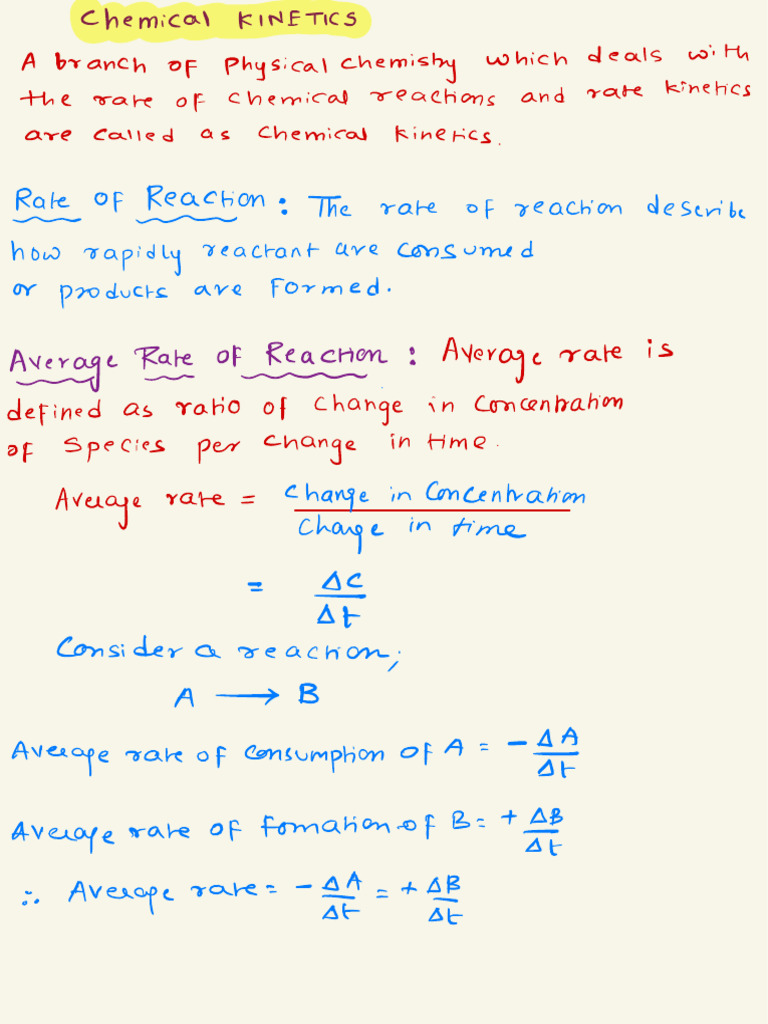 Chemical KINETICS
A branch of Physical Chemistry which deals with
the rate of chemical reactions and rate kinetics
are called as Chemical Kinetics.
Rate of Reaction : The rate of reaction describe
how rapidly reactant are consumed
or products are formed.
Average Rate of Reaction : Average rate is
defined as ratio of change in concentration
of species per change in time.
Average rate = Change in Concentration / Change in time
= ΔC / Δt
Consider a reaction;
A ⟶ B
Average rate of consumption of A = - ΔA / Δt
Average rate of fomation of B = + ΔB / Δt
∴ Average rate = - ΔA / Δt = + ΔB / Δt